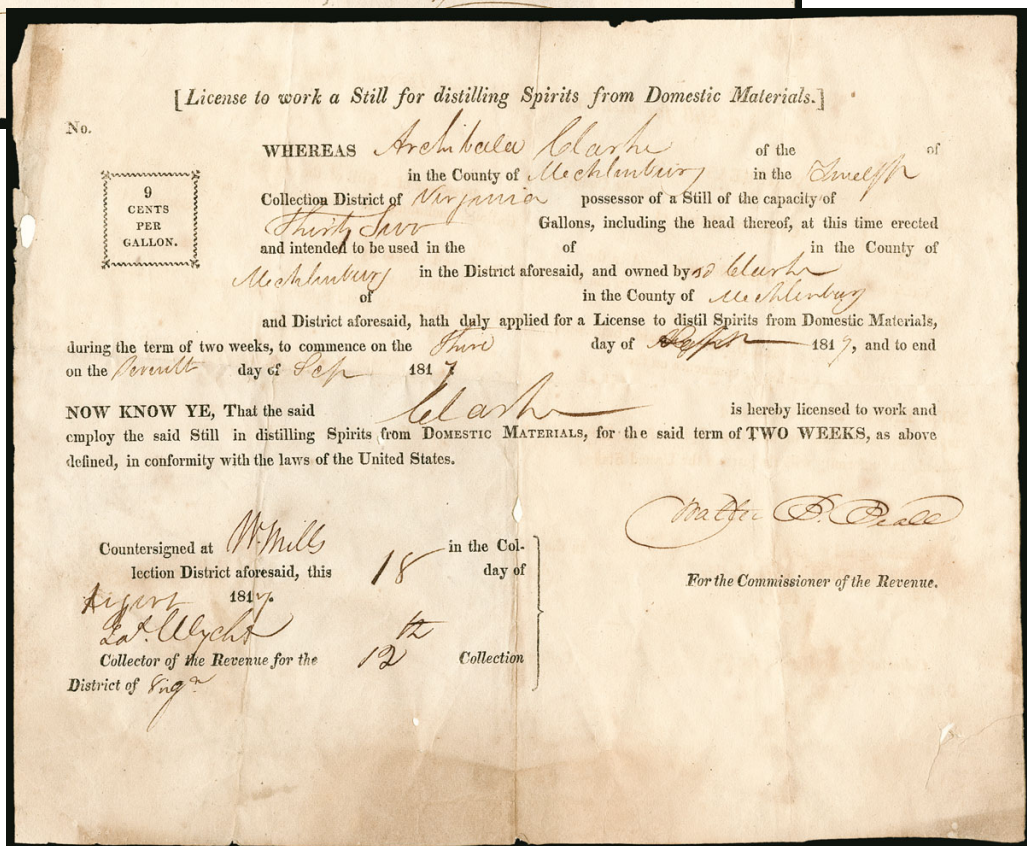 [License to work a Still for distilling Spirits from Domestic Materials.]
No.
9
CENTS
PER
GALLON.
WHEREAS Archibald Clarke of the of
in the County of Mecklenburg in the Twelfth
Collection District of Virginia possessor of a Still of the capacity of
Thirty Two Gallons, including the head thereof, at this time erected
and intended to be used in the of in the County of
Mecklenburg in the District aforesaid, and owned by sd Clarke
of in the County of Mecklenburg
and District aforesaid, hath duly applied for a License to distil Spirits from Domestic Materials,
during the term of two weeks, to commence on the day of 1817, and to end
on the day of Sep 1817
NOW KNOW YE, That the said Clarke is hereby licensed to work and
employ the said Still in distilling Spirits from DOMESTIC MATERIALS, for the said term of TWO WEEKS, as above
defined, in conformity with the laws of the United States.
Countersigned at W. Mills in the Col-
lection District aforesaid, this 18 day of
August 1817.
Collector of the Revenue for the 12th Collection
District of Virga
For the Commissioner of the Revenue.